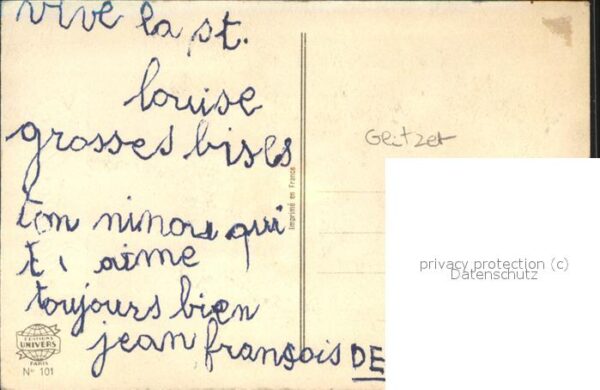 vive la st.
louise
grosses bises
ton ninou qui
t, aime
toujours bien
jean françois DE
Glitzer
Imprimé en France
privacy protection (c)
Datenschutz
EDITIONS
UNIVERS
PARIS
N° 101